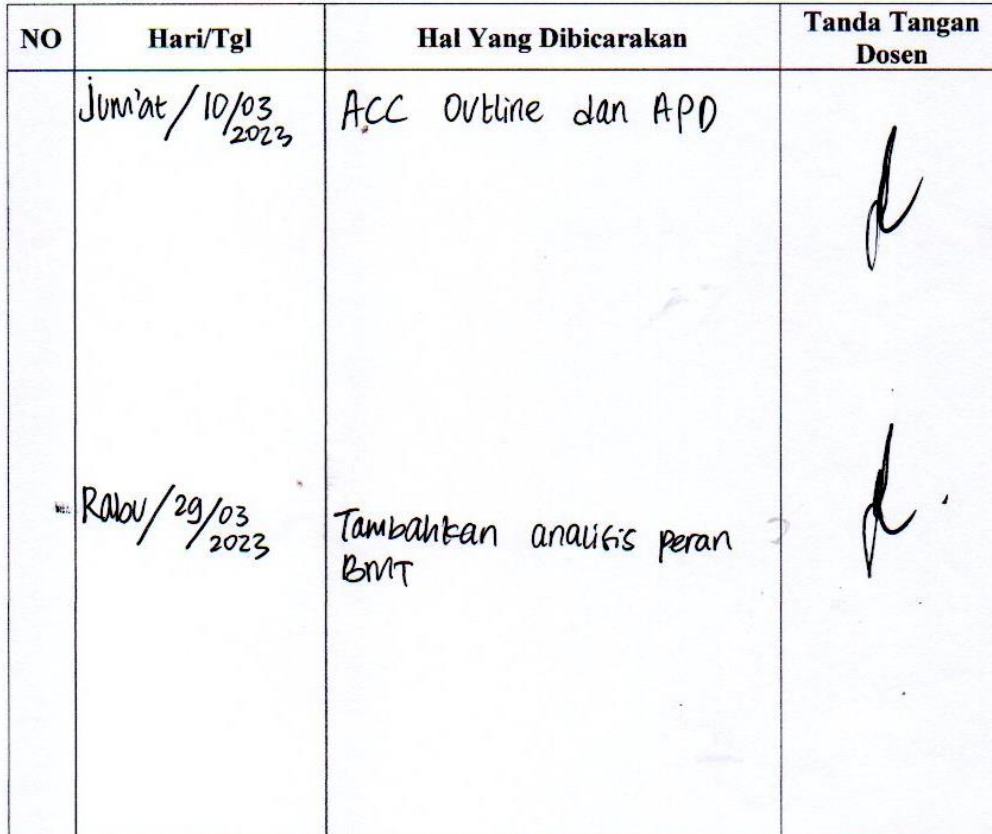 NO Hari/Tgl Hal Yang Dibicarakan Tanda Tangan
Dosen
Jum'at / 10/03 ACC Outline dan APD
2023
Rabu / 29/03 Tambahkan analisis peran
2023 BMT